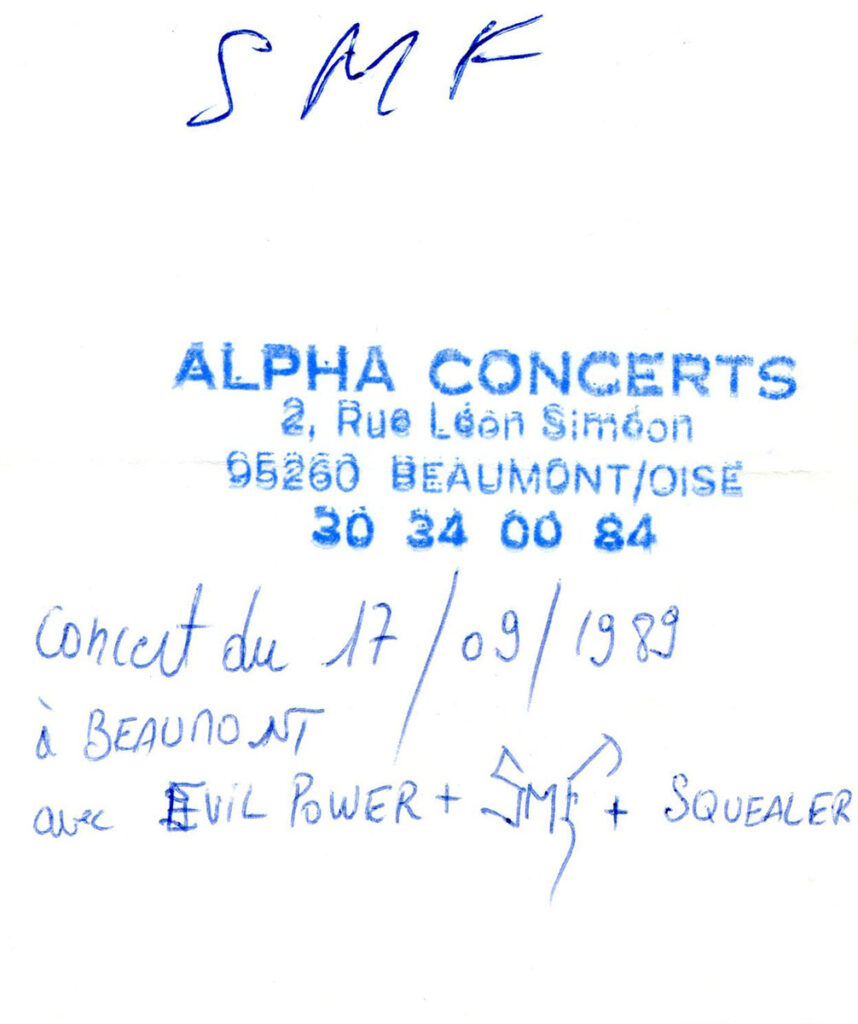 SMF
ALPHA CONCERTS
2, Rue Léon Siméon
95260 BEAUMONT/OISE
30 34 00 84
Concert du 17/09/1989
à BEAUMONT
avec EVIL POWER + SMF + SQUEALER